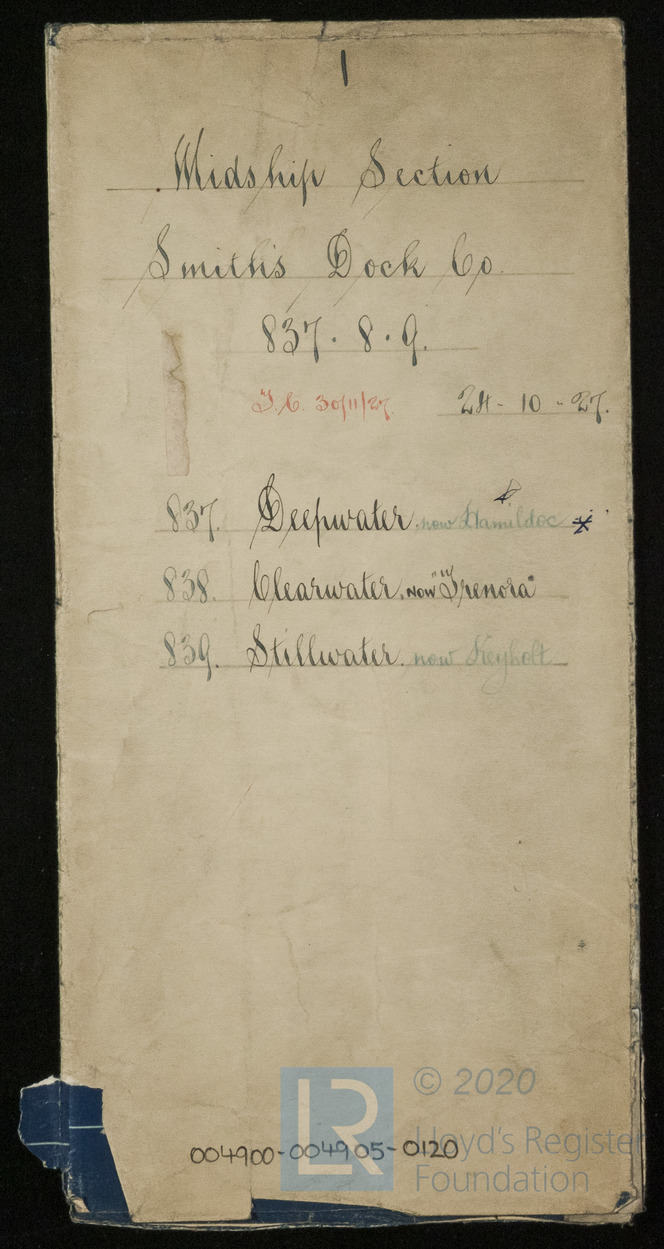 1
Midship Section
Smith's Dock Co.
837. 8. 9.
J.C. 30/11/27. 24-10-27.
837. Deepwater. now Hamildoc *
838. Clearwater. now "Trenora"
839. Stillwater. now Keyholt
© 2020
LR Lloyd's Register
Foundation
004900-004905-0120